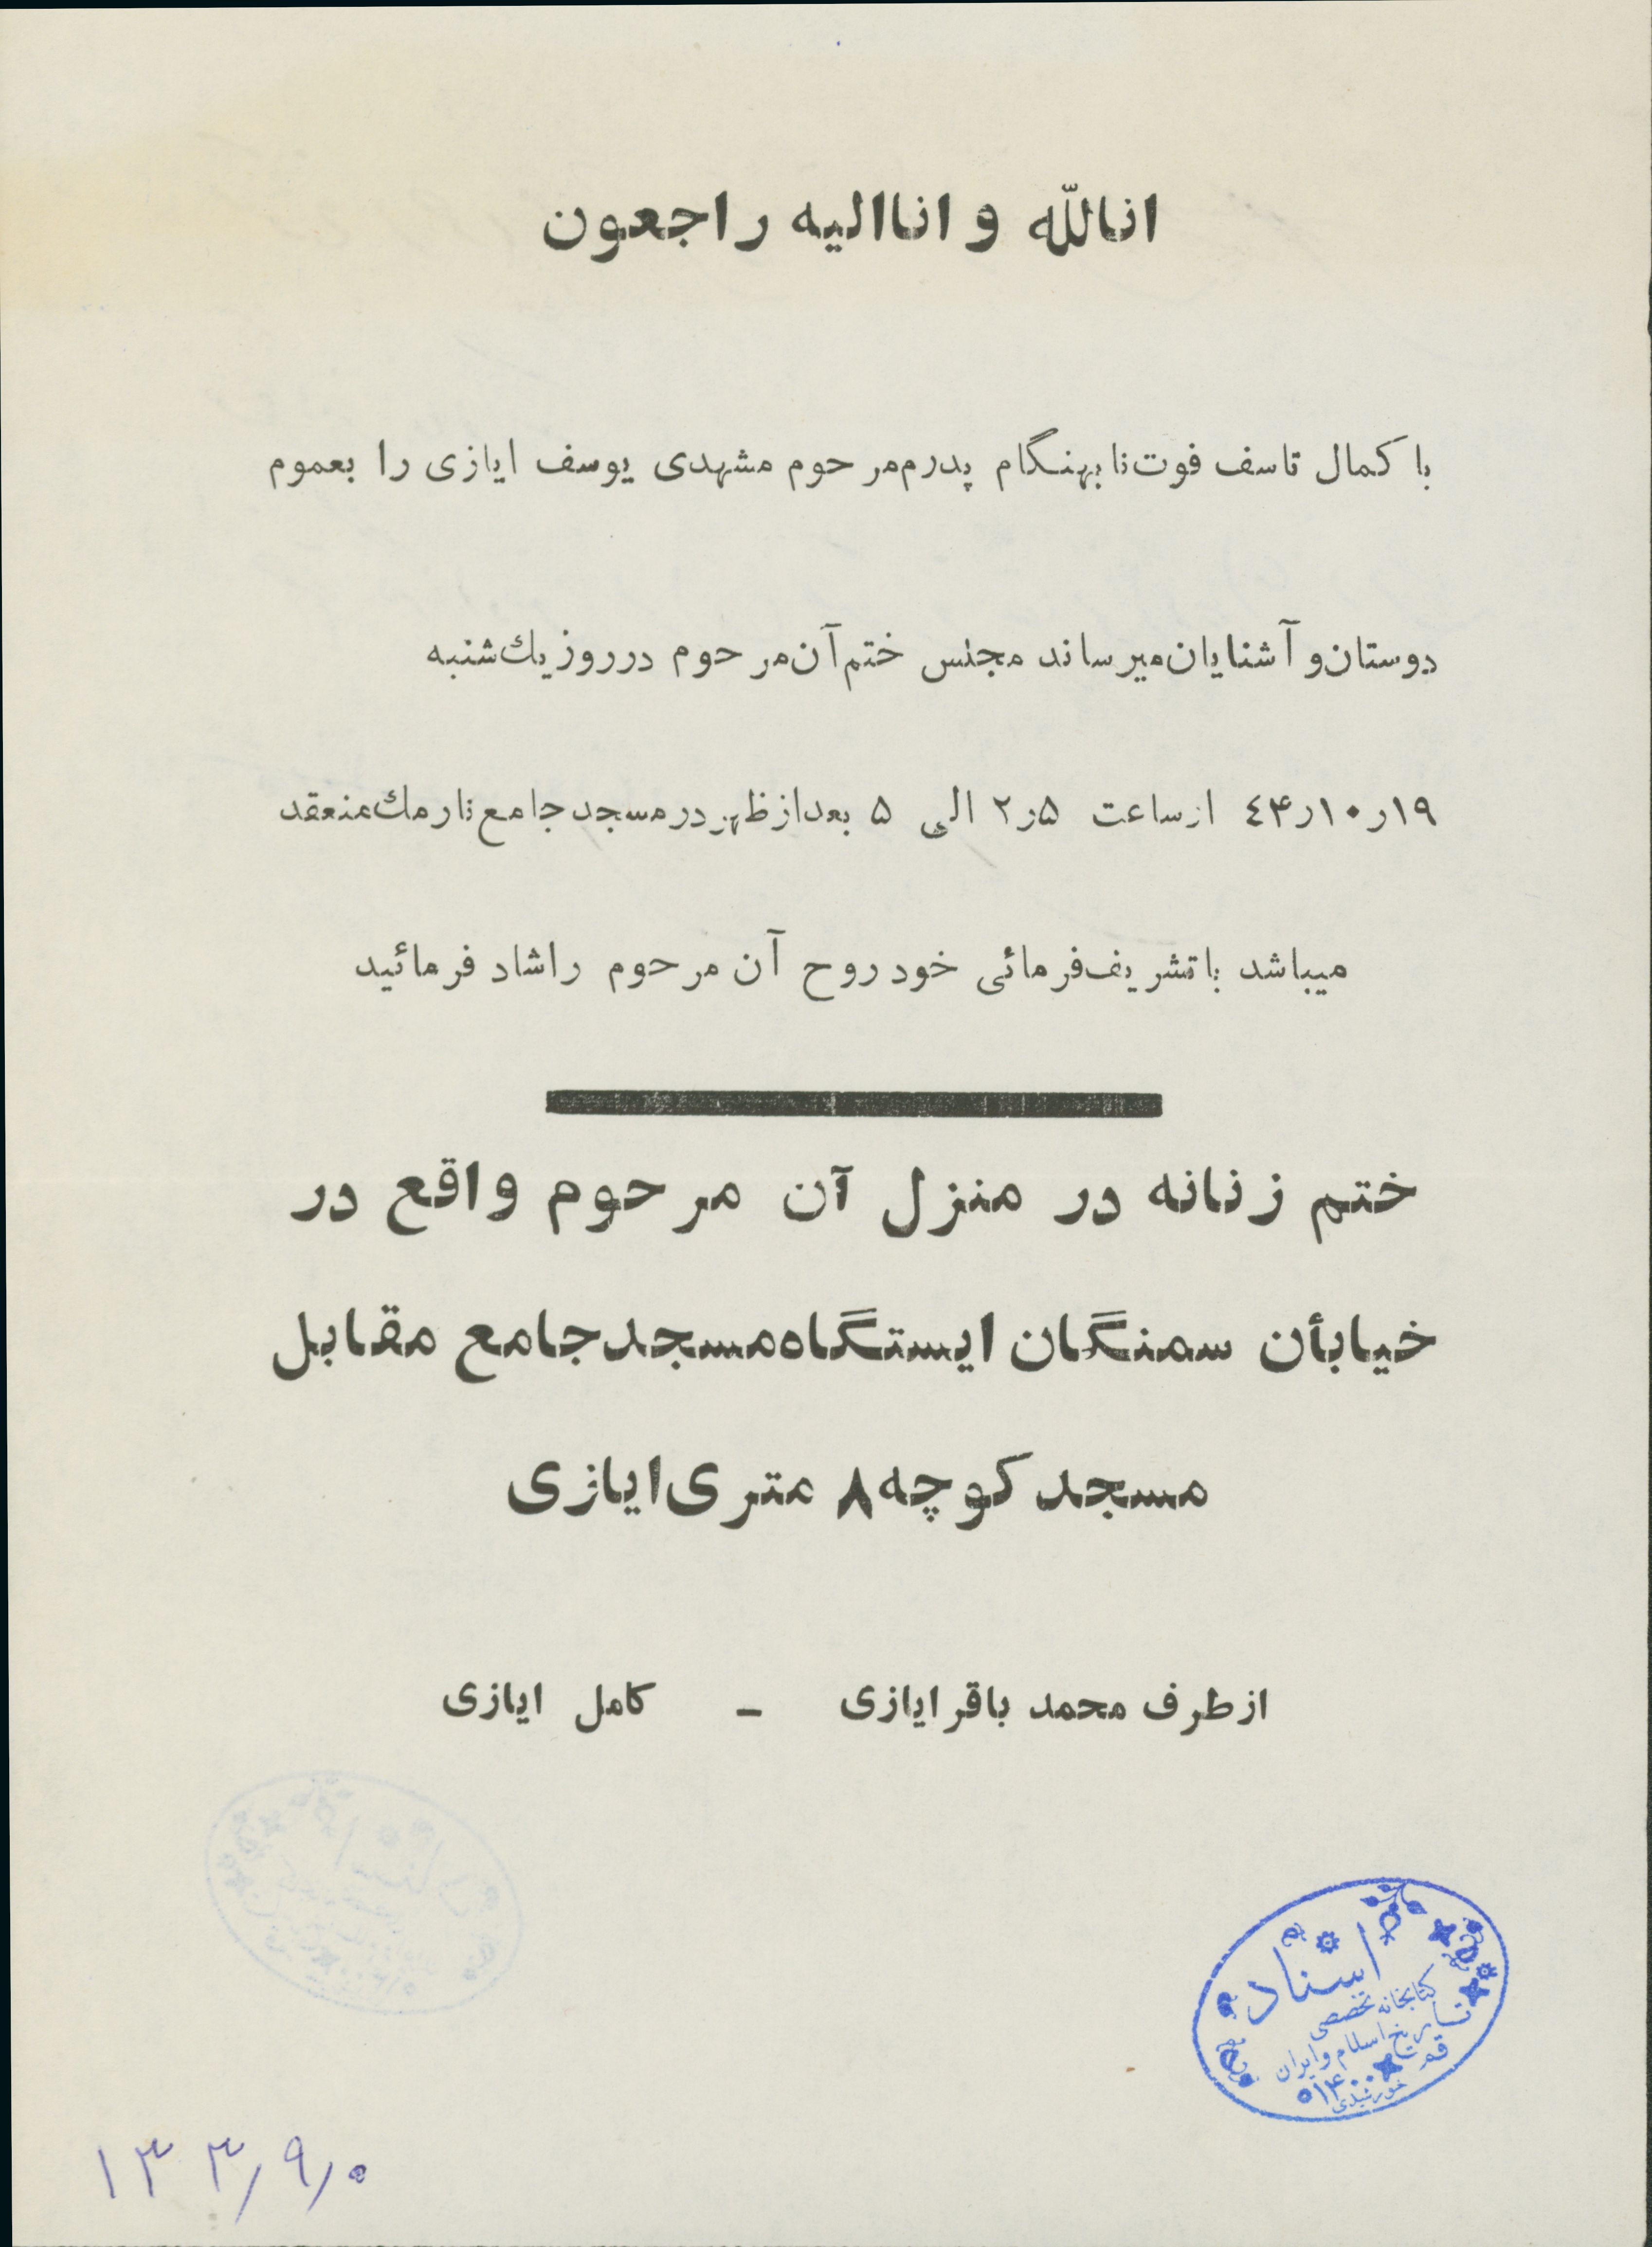 انالله و اناالیه راجعون
با کمال تاسف فوت نا بهنگام پدرم مرحوم مشهدی یوسف ایازی را بعموم
دوستان و آشنایان میرساند مجلس ختم آن مرحوم در روز یك شنبه
۱۹ر۱۰ر۴۴ از ساعت ۲ر۵ الی ۵ بعداز ظهر در مسجد جامع نارمك منعقد
میباشد با تشریف فرمائی خود روح آن مرحوم را شاد فرمائید
ختم زنانه در منزل آن مرحوم واقع در
خیابأن سمنگان ایستگاه مسجد جامع مقابل
مسجد کوچه ۸ متری ایازی
از طرف محمد باقر ایازی – کامل ایازی
اسناد
کتابخانه تخصصی
تاریخ اسلام و ایران
قم
۱۴۰۰
خورشیدی
۱۳۳/۹/۰